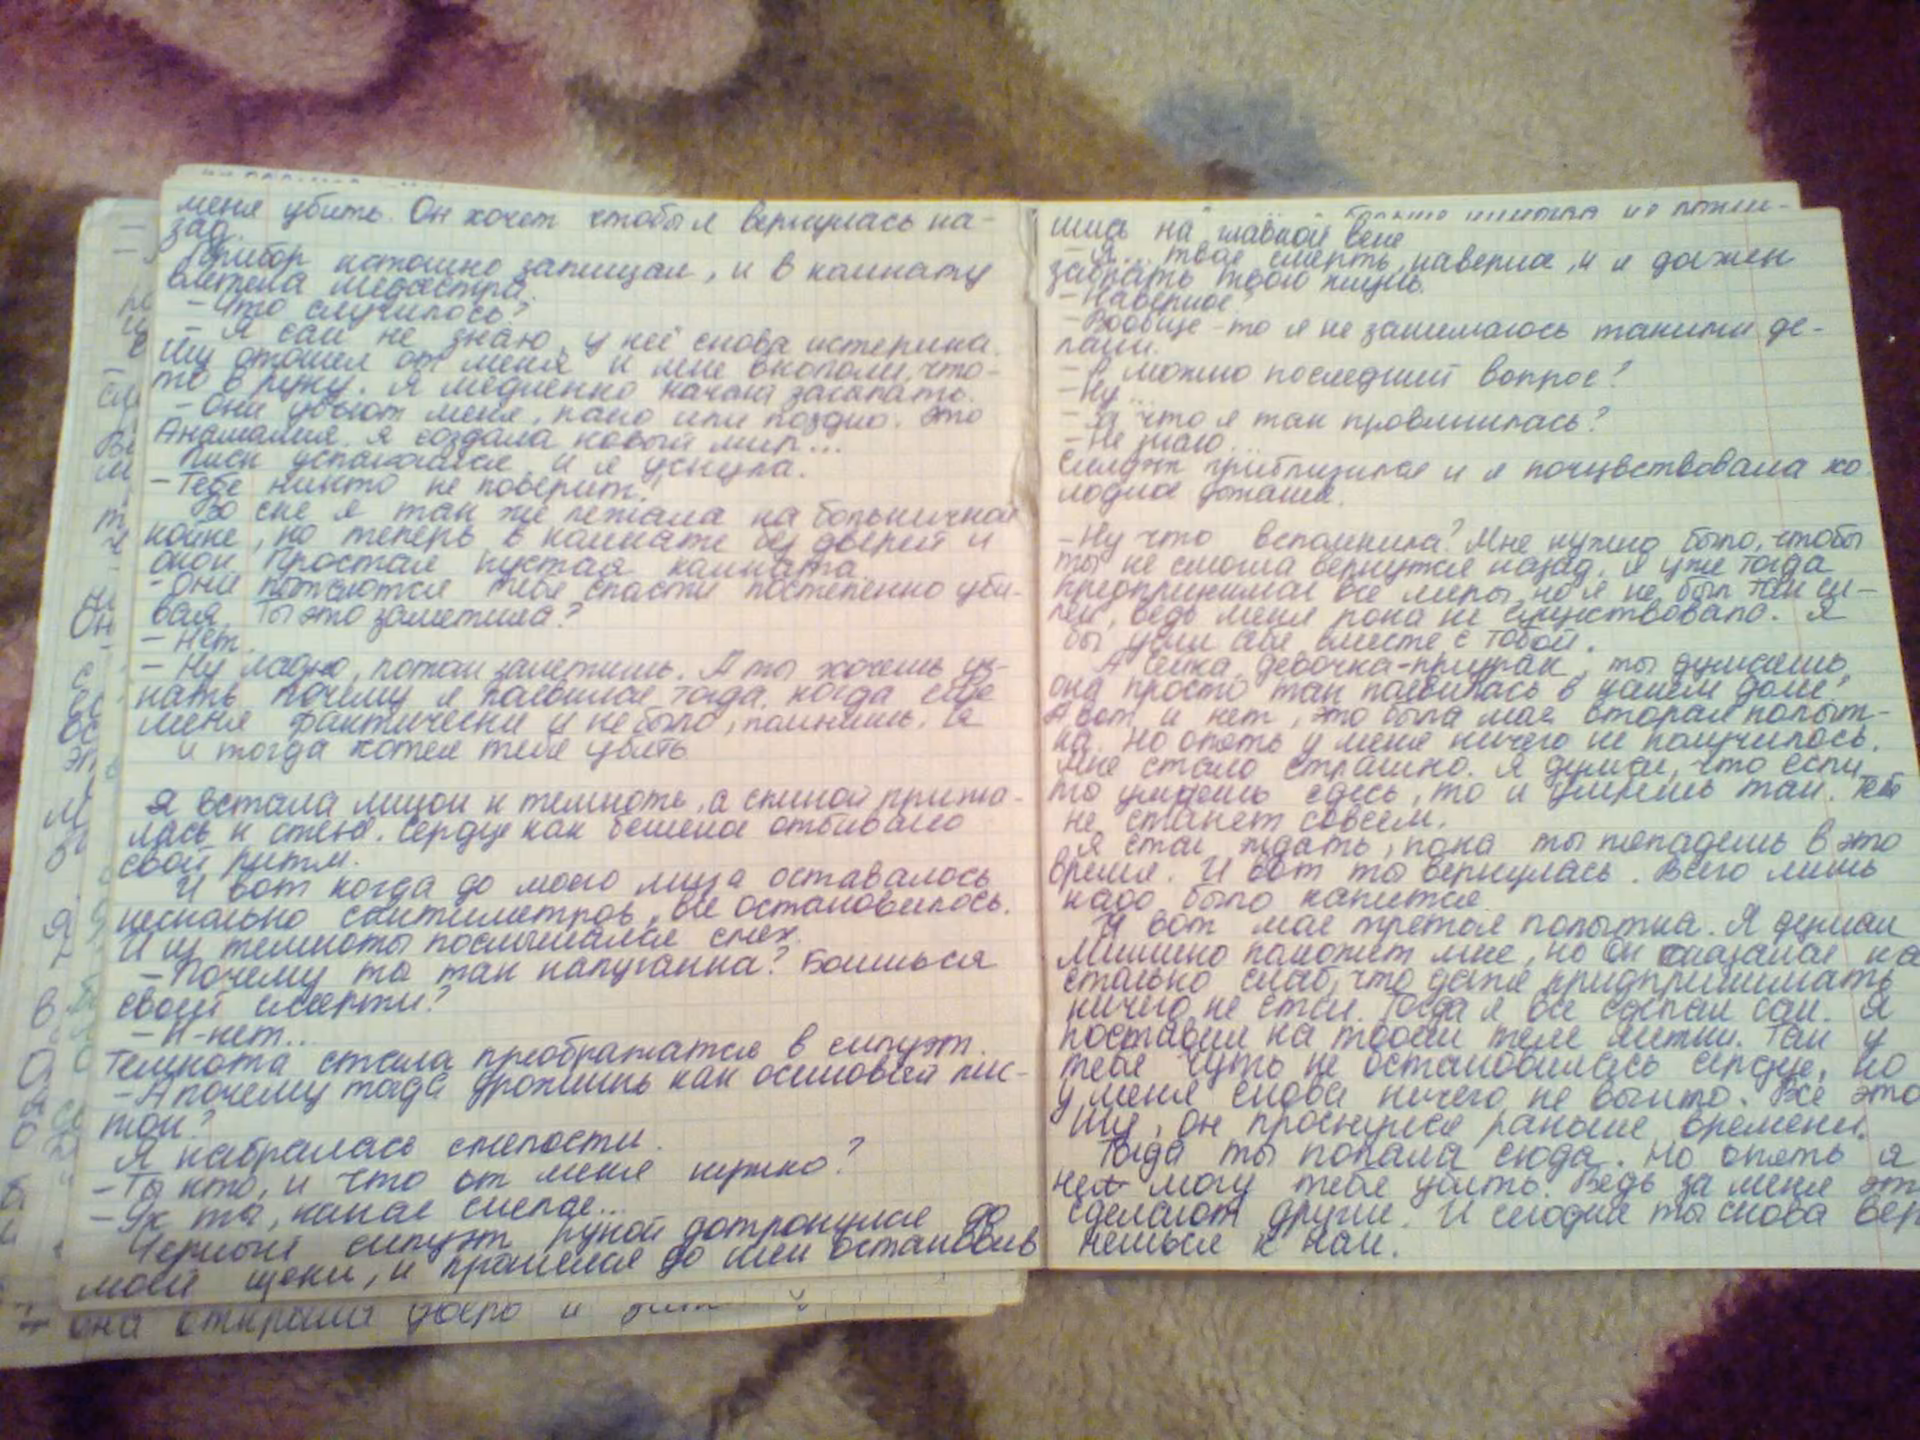 меня убить. Он хочет чтобы я вернулась на-
зад.
Прибор истошно запищал, и в комнату
влетела медсестра.
- Что случилось?
- Я сам не знаю, у неё снова истерика.
Шу отошел от меня и мне вкололи, что-
то в руку. Я медленно начала засыпать.
- Они убьют меня, рано или поздно. Это
Анамалия. Я создала новый мир...
Писк успокоился и я уснула.
- Тебе никто не поверит.
Во сне я так же лежала на больничной
койке, но теперь в комнате без дверей и
окон. Простая пустая комната.
- Они пытаются тебя спасти постепенно уби-
вая. Ты это заметила?
- Нет.
- Ну ладно, потом заметишь. А ты хочешь уз-
нать почему я появился тогда, когда ещё
меня фактически и не было, помнишь. Я
и тогда хотел тебя убить
Я встала лицом к темноте, а спиной прижа-
лась к стене. Сердце как бешеное отбивало
свой ритм.
И вот когда до моего лица оставалось
несколько сантиметров, все остановилось.
И из темноты послышался смех.
- Почему ты так напуганна? Боишься
своей смерти?
- Н-нет..
Темнота стала преображатся в силуэт.
- А почему тогда дрожишь как осиновый лис-
ток?
Я набралась смелости.
- Ты кто, и что от меня нужно?
- Ух ты, какая смелая...
Черный силуэт рукой дотронулся до
моей щеки, и прошелся до шеи остановив
она открыла дверь и
шись на главной вене
- Я... твоя смерть, наверное, и я должен
забрать твою жизнь.
- Наверное?
- Вообще-то я не занимаюсь такими де-
лами.
- А можно последний вопрос?
- Ну...
- а что я так провинилась?
- Не знаю...
Силуэт приблизился и я почувствовала хо-
лодное дыхание.
- Ну что вспомнила? Мне нужно было, чтобы
ты не смогла вернутся назад. Я уже тогда
предпринимал все меры, но я не был так си-
лён, ведь меня пока не существовало. Я
бы убил себя вместе с тобой.
А Сейка, девочка-призрак, ты думаешь
она просто так появилась в нашем доме?
А вот и нет, это была моя вторая попыт-
ка. Но опять у меня ничего не получилось.
Мне стало страшно. Я думал, что если
ты умрешь здесь, то и умрешь там. Тебя
не станет совсем.
Я стал ждать, пока ты попадешь в это
время. И вот ты вернулась. Всего лишь
надо было
И вот моя третья попытка. Я думал
поможет мне, но он оказался на
столько слаб, что даже предпринимать
ничего не стал. Тогда я все сделал сам. Я
поставил на твоем теле метки. Так у
тебя чуть не остановилась сердце, но
у меня снова ничего не вышло. Все это
Шу, он проснулся раньше времени.
Тогда ты попала сюда. Но опять я
не могу тебя убить. Ведь за меня это
сделают другие. И сегодня ты снова вер
нешься к нам.